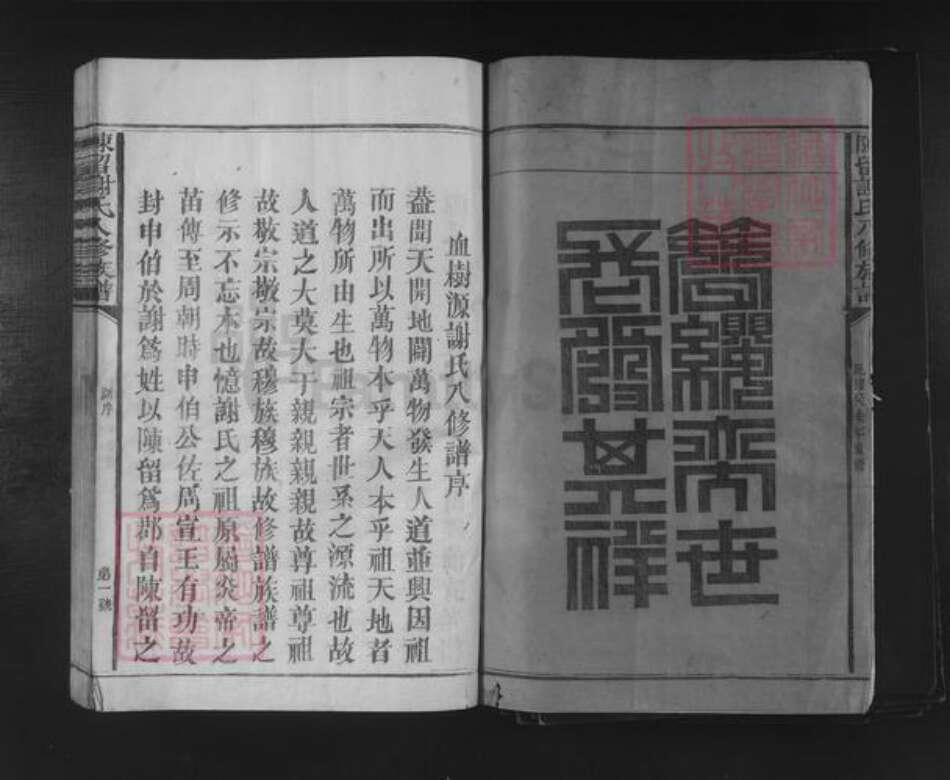 奕世
其祥
陳留謝氏八修族譜
血樹源謝氏八修譜序
葢聞天開地闢萬物發生人道並興因祖
而出所以萬物本乎天人本乎祖天地者
萬物所由生也祖宗者世系之源流也故
人道之大莫大于親親親親故尊祖尊祖
故敬宗敬宗故穆族穆族故修譜族譜之
修示不忘本也憶謝氏之祖原屬炎帝之
苗傳至周朝時申伯公佐周宣王有功故
封申伯於謝爲姓以陳留爲郡自陳留之
陳留謝氏八修族譜
源序
第一號